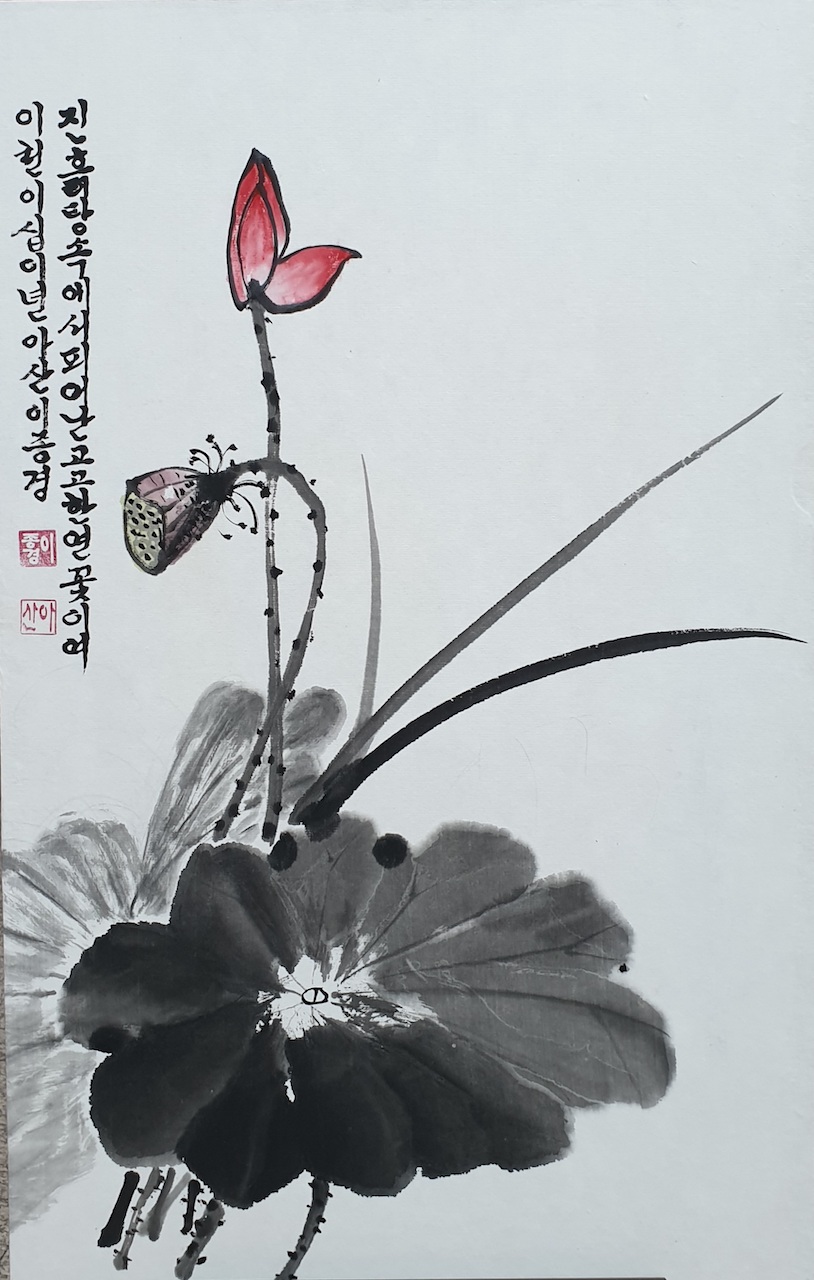 진흙탕속에서피어난고고한연꽃이여
이천이십이년아산이종경
이종경
아산